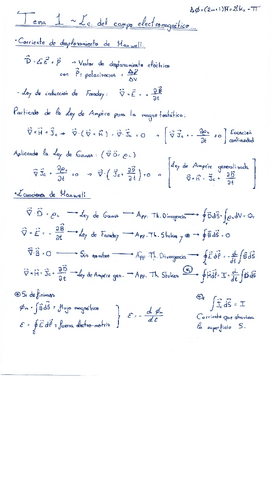 Tema 1 ~ Ec. del campo electromagnético
- Corriente de desplazamiento de Maxwell.
D⃗ = ε₀E⃗ + P⃗ → Vector de desplazamiento eléctrico
con P⃗: polarización =
- Ley de inducción de Faraday: ∇⃗ × E⃗ = - ∂B⃗/∂t
Partiendo de la Ley de Ampère para la magnetostática:
∇⃗ × H⃗ = J⃗ₛ → ∇⃗ · (∇⃗ × H⃗) = ∇⃗ · J⃗ₛ = 0 → [ ∇⃗ · J⃗ₛ = - ∂ρₛ/∂t ] Ecuación continuidad
Aplicando la Ley de Gauss: (∇⃗ · D⃗ = ρₛ)
∇⃗ · J⃗ₛ + ∂ρₛ/∂t = 0 → ∇⃗ · (J⃗ₛ + ∂D⃗/∂t) = 0 → [ Ley de Ampère generalizada
∇⃗ × H⃗ = J⃗ₛ + ∂D⃗/∂t ]
- Ecuaciones de Maxwell
∇⃗ · D⃗ = ρₛ → Ley de Gauss → App. Th. Divergencia → ∮D⃗dS⃗ = ∫ρₛdV = Qᵢ
∇⃗ × E⃗ = - ∂B⃗/∂t → Ley de Faraday → App. Th. Stokes
∇⃗ · B⃗ = 0 → Sin nombre → App. Th. Divergencia
∇⃗ × H⃗ = J⃗ₛ + ∂D⃗/∂t → Ley de Ampère gen. → App. Th. Stokes
Si definimos
φₘ = ∫B⃗dS⃗ = flujo magnético
ε = ∮E⃗dl⃗ = fuerza electro-motriz
ε = - dφₘ/dt
∫J⃗ₛdS⃗ = I
Corriente que atraviesa
la superficie S.